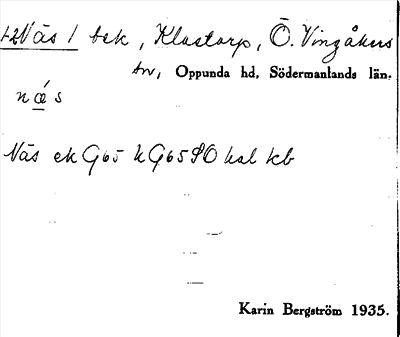 Näs 1 bek, Klastorp, Ö. Vingåkers
sn, Oppunda hd, Södermanlands län.
næ´s
Näs ek G65 h G65 SO hsl kb
Karin Bergström 1935.